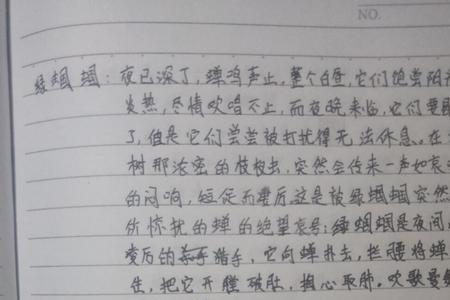 NO.
绿蝈蝈：夜已深了，蝉鸣声止，整个白昼，它们饱尝阳
炎热，尽情吹唱不止，而夜晚来临，它们要
了，但是它们尝尝被打扰得无法休息。在
树那浓密的枝杈里，突然会传来一声如哀
的闷响，短促而凄厉，这是被绿蝈蝈突然
所惊扰的蝉的绝望哀号；绿蝈蝈是夜间
凌厉的杀手 猎手，它向蝉扑去，拦腰将蝉
住，把它开膛破肚，掏心取肺。吹歌